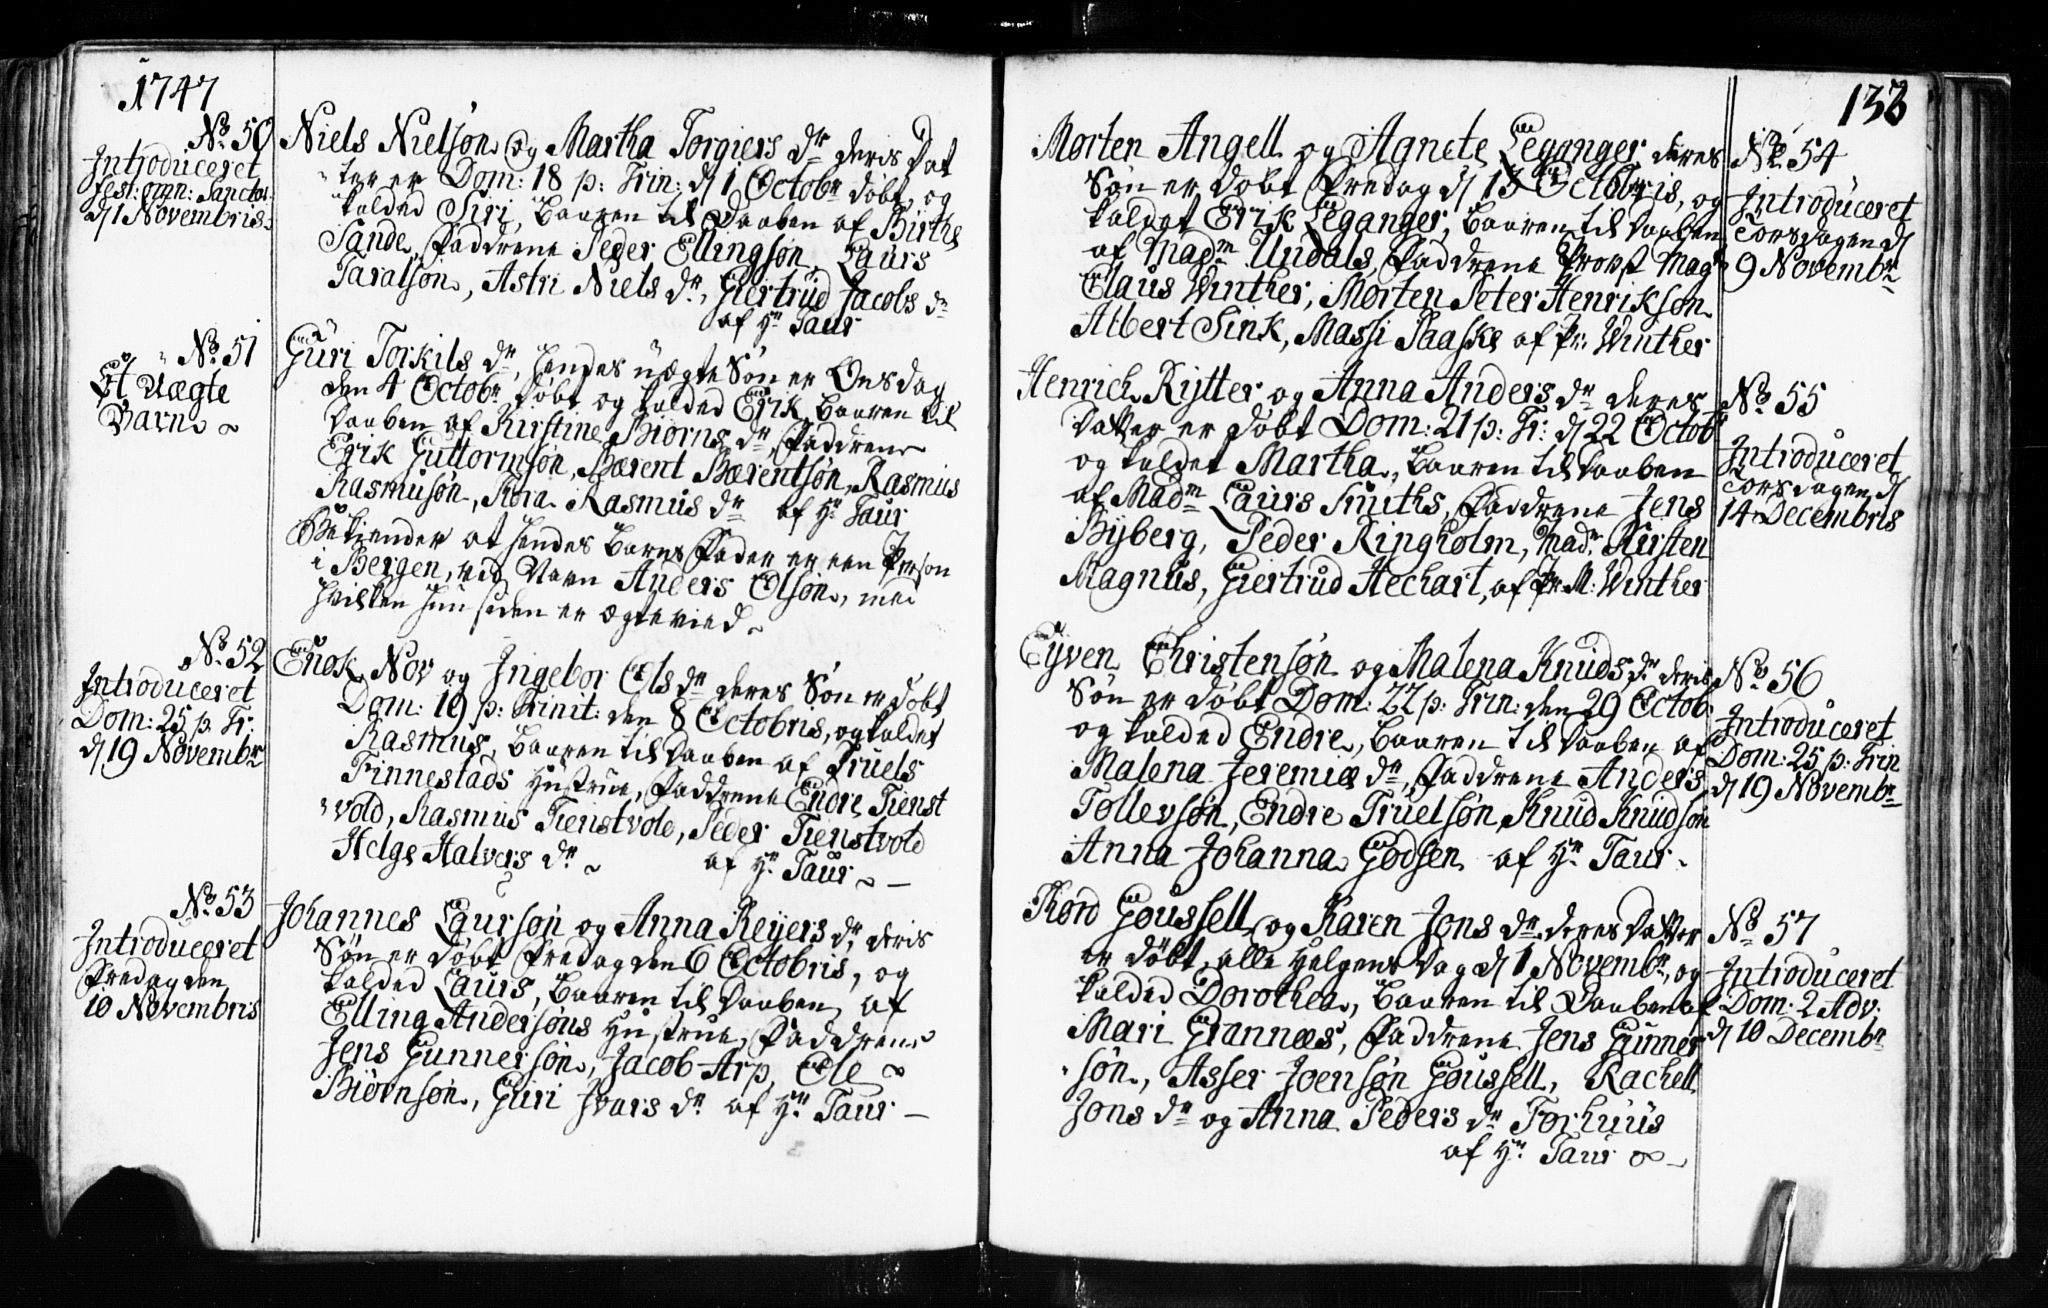 1747
No. 50
Introduceret
fest: omn: Sanctor:
d/ 1 Novembris.
Niels Nielsøn og Martha Torgiers dr deris Dat
ter er Dom: 18 p: Trin: d/ 1 Octobr døbt, og
kalded Siri, baaren til Daaben af Birthe
Sande, Faddrene Peder Ellingsøn, Laurs
Taralsøn, Astri Niels dr, Giertrud Jacobs dr
af Hr. Taur
No. 51
Et Uægte
Barn
Guri Torkils dr, hendes uægte Søn er Onsdag
den 4 Octobr døbt og kalded Erik, baaren til
Daaben af Kirstine Biørns dr, Faddrene
Erik Guttormsøn, Bærent Bærentsøn, Rasmus
Rasmusøn, Kora Rasmus dr af Hr. Taur
Bekiender at hendes Barns Fader er een Person
i Bergen, ved Navn Anders Olsøn, med
hvilken hun siden er ægtevied
No. 52
Introduceret
Dom: 25 p: Tr:
d/ 19 Novembr
Enok Nov og Ingebor Ols dr deres Søn er døbt
Dom: 19 p: Trinit: den 8 Octobris, og kaldet
Rasmus, baaren til Daaben af Truels
Finnestads Hustrue, Faddrene Endre Tienst
vold, Rasmus Tienstvold, Peder Tienstvold
Helge Halvers dr af Hr. Taur
No. 53
Introduceret
Fredag den
10 Novembris
Johannes Laursøn og Anna Reijers dr, deris
Søn er døbt Fredag den 6 Octobris, og
kalded Laurs, baaren til Daaben af
Elling Andersøns Hustrue, Faddrene
Jens Gunnersøn, Jacob Arp, Ole
Biørnsøn, Guri Ivars dr af Hr. Taur
138
Morten Angell og Agnete Leganger deres
Søn er døbt Fredag d/ 13 Octobris, og
kaldet Erik Leganger, baaren til Daaben
af Madm Undals, Faddrene Provst Magr
Claus Winther, Morten Peter Henriksøn
Albert Sink, Massi Paaske af Pr: Winther
No. 54
Introduceret
Torsdagen d/
9 Novembr
Henrich Rijtter og Anna Anders dr deres
Datter er døbt Dom: 21 p: Tr: d/ 22 Octob
og kaldet Martha, baaren til Daaben
af Madm Laurs Smiths, Faddrene Jens
Bijberg, Peder Ringholm, Madm Kirsten
Magnus, Giertrud Hechart, af Pr M: Winther
No. 55
Introduceret
Torsdagen d/
14 Decembris
Eyven Christensøn og Malena Knuds dr deris
Søn er døbt Dom: 22 p: Trin: den 29 Octob:
og kalded Endre, baaren til Daaben af
Malena Jeremiæ dr, Faddrene Anders
Tollevsøn, Endre Truelsøn, Knud Knudsøn
Anna Johanna Godsen af Hr. Taur
No. 56
Introduceret
Dom: 25 p: Trin
d/ 19 Novembr
Thord Goussell og Karen Jons dr deres Datter
er døbt, alle Helgens Dag d/ 1 Novembr, og
kalded Dorothea, baaren til Daaben af
Mari Grannæs, Faddrene Jens Gunner
søn, Asser Joensøn Goussell, Rachell
Jons dr og Anna Peders dr Torhuus
af Hr. Taur
No. 57
Introduceret
Dom: 2 Adv:
d/ 10 Decembr